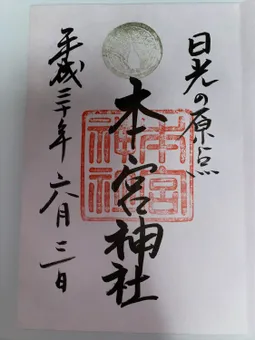 日光の原点
本宮神社
本宮
神社
平成三十年六月二日